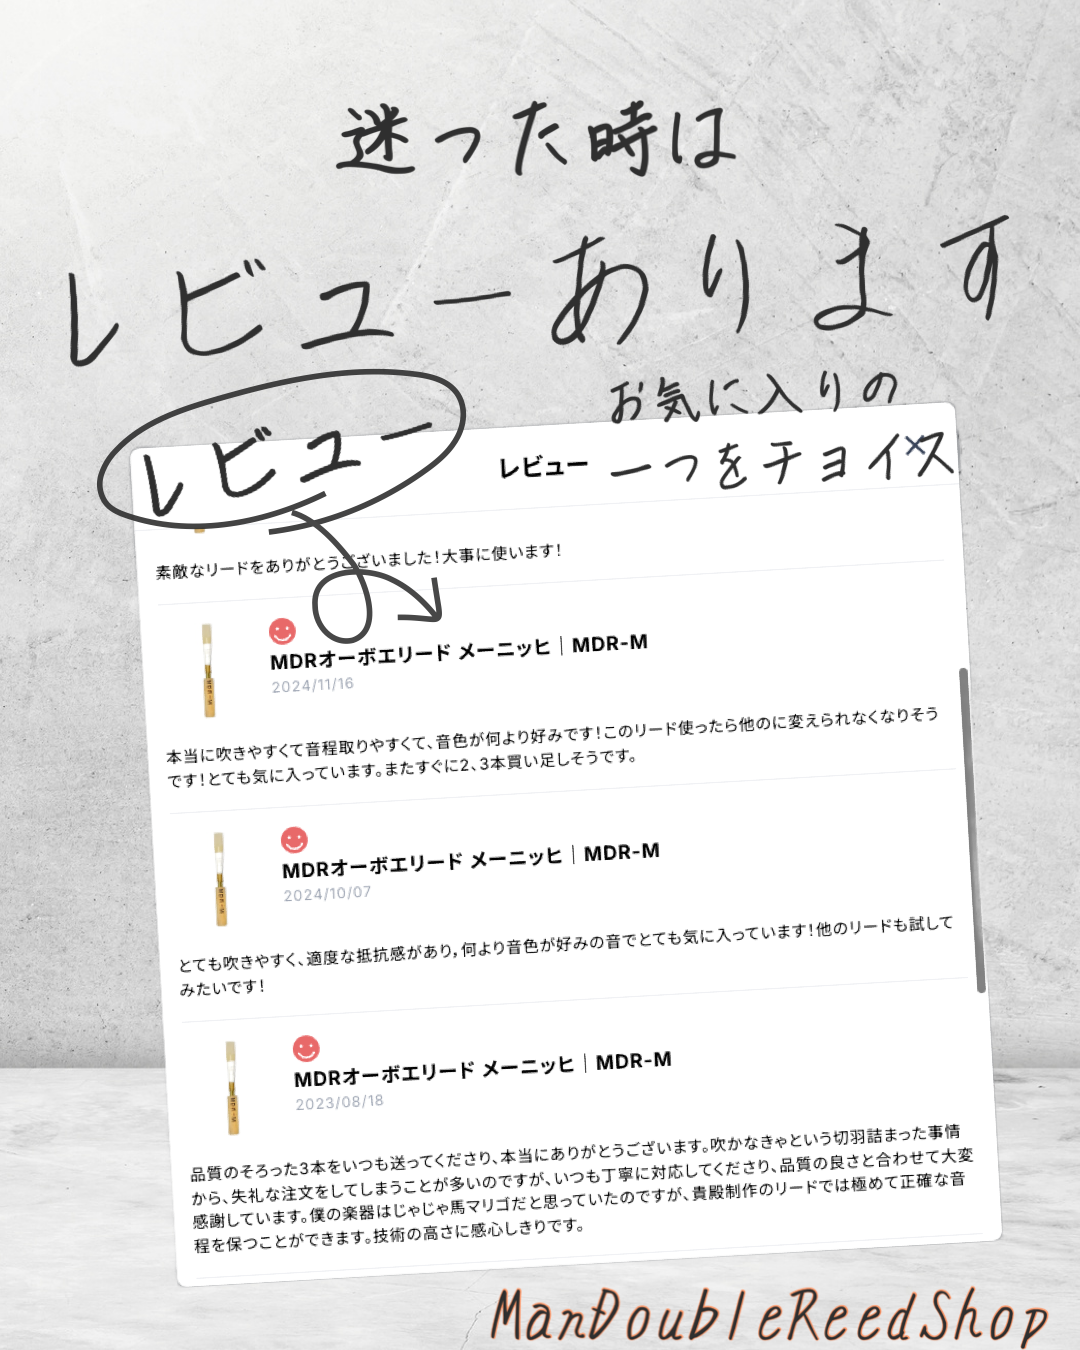 迷った時は
レビューあります
お気に入りの
レビュー
レビュー
一つをチョイス
素敵なリードをありがとうございました！大事に使います！
MDRオーボエリード メーニッヒ｜MDR-M
2024/11/16
本当に吹きやすくて音程取りやすくて、音色が何より好みです！このリード使ったら他のに変えられなくなりそう
です！とても気に入っています。またすぐに2、3本買い足しそうです。
MDRオーボエリード メーニッヒ｜MDR-M
2024/10/07
とても吹きやすく、適度な抵抗感があり，何より音色が好みの音でとても気に入っています！他のリードも試して
みたいです！
MDRオーボエリード メーニッヒ｜MDR-M
2023/08/18
品質のそろった3本をいつも送ってくださり、本当にありがとうございます。吹かなきゃという切羽詰まった事情
から、失礼な注文をしてしまうことが多いのですが、いつも丁寧に対応してくださり、品質の良さと合わせて大変
感謝しています。僕の楽器はじゃじゃ馬マリゴだと思っていたのですが、貴殿制作のリードでは極めて正確な音
程を保つことができます。技術の高さに感心しきりです。
ManDoubleReedShop